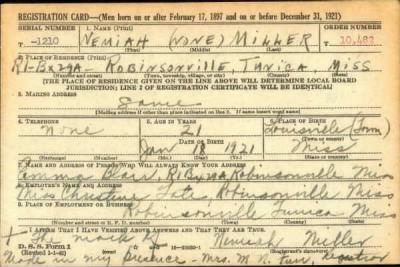 REGISTRATION CARD—(Men born on or after February 17, 1897 and on or before December 31, 1921)
SERIAL NUMBER 1. NAME (Print) ORDER NUMBER
T-1210 NEMIAH (NONE) MILLER 10,482
2. PLACE OF RESIDENCE (Print)
R1-Bx29A- ROBINSONVILLE, TUNICA, MISS
(Number and street) (Town, township, village, or city) (County) (State)
[THE PLACE OF RESIDENCE GIVEN ON THE LINE ABOVE WILL DETERMINE LOCAL BOARD
JURISDICTION; LINE 2 OF REGISTRATION CERTIFICATE WILL BE IDENTICAL]
3. MAILING ADDRESS
Same
[Mailing address if other than place indicated on line 2. If same insert word same]
4. TELEPHONE 5. AGE IN YEARS 6. PLACE OF BIRTH
None 21 Louisville (Town)
DATE OF BIRTH (Town or county)
Jan 18 1921 Miss
(Mo.) (Day) (Yr.) (State or country)
7. NAME AND ADDRESS OF PERSON WHO WILL ALWAYS KNOW YOUR ADDRESS
Emma Blair, R1 Bx29A Robinsonville Miss
8. EMPLOYER'S NAME AND ADDRESS
Miss Christine Tate, Robinsonville Miss
9. PLACE OF EMPLOYMENT OR BUSINESS
Robinsonville Tunica Miss
(Number and street or R. F. D. number) (Town) (County) (State)
I AFFIRM THAT I HAVE VERIFIED ABOVE ANSWERS AND THAT THEY ARE TRUE.
X mark Nemiah Miller
D. S. S. Form 1 (Registrant's signature)
(Revised 1-1-42)
Made in my presence - Mrs. M. N. Registrar